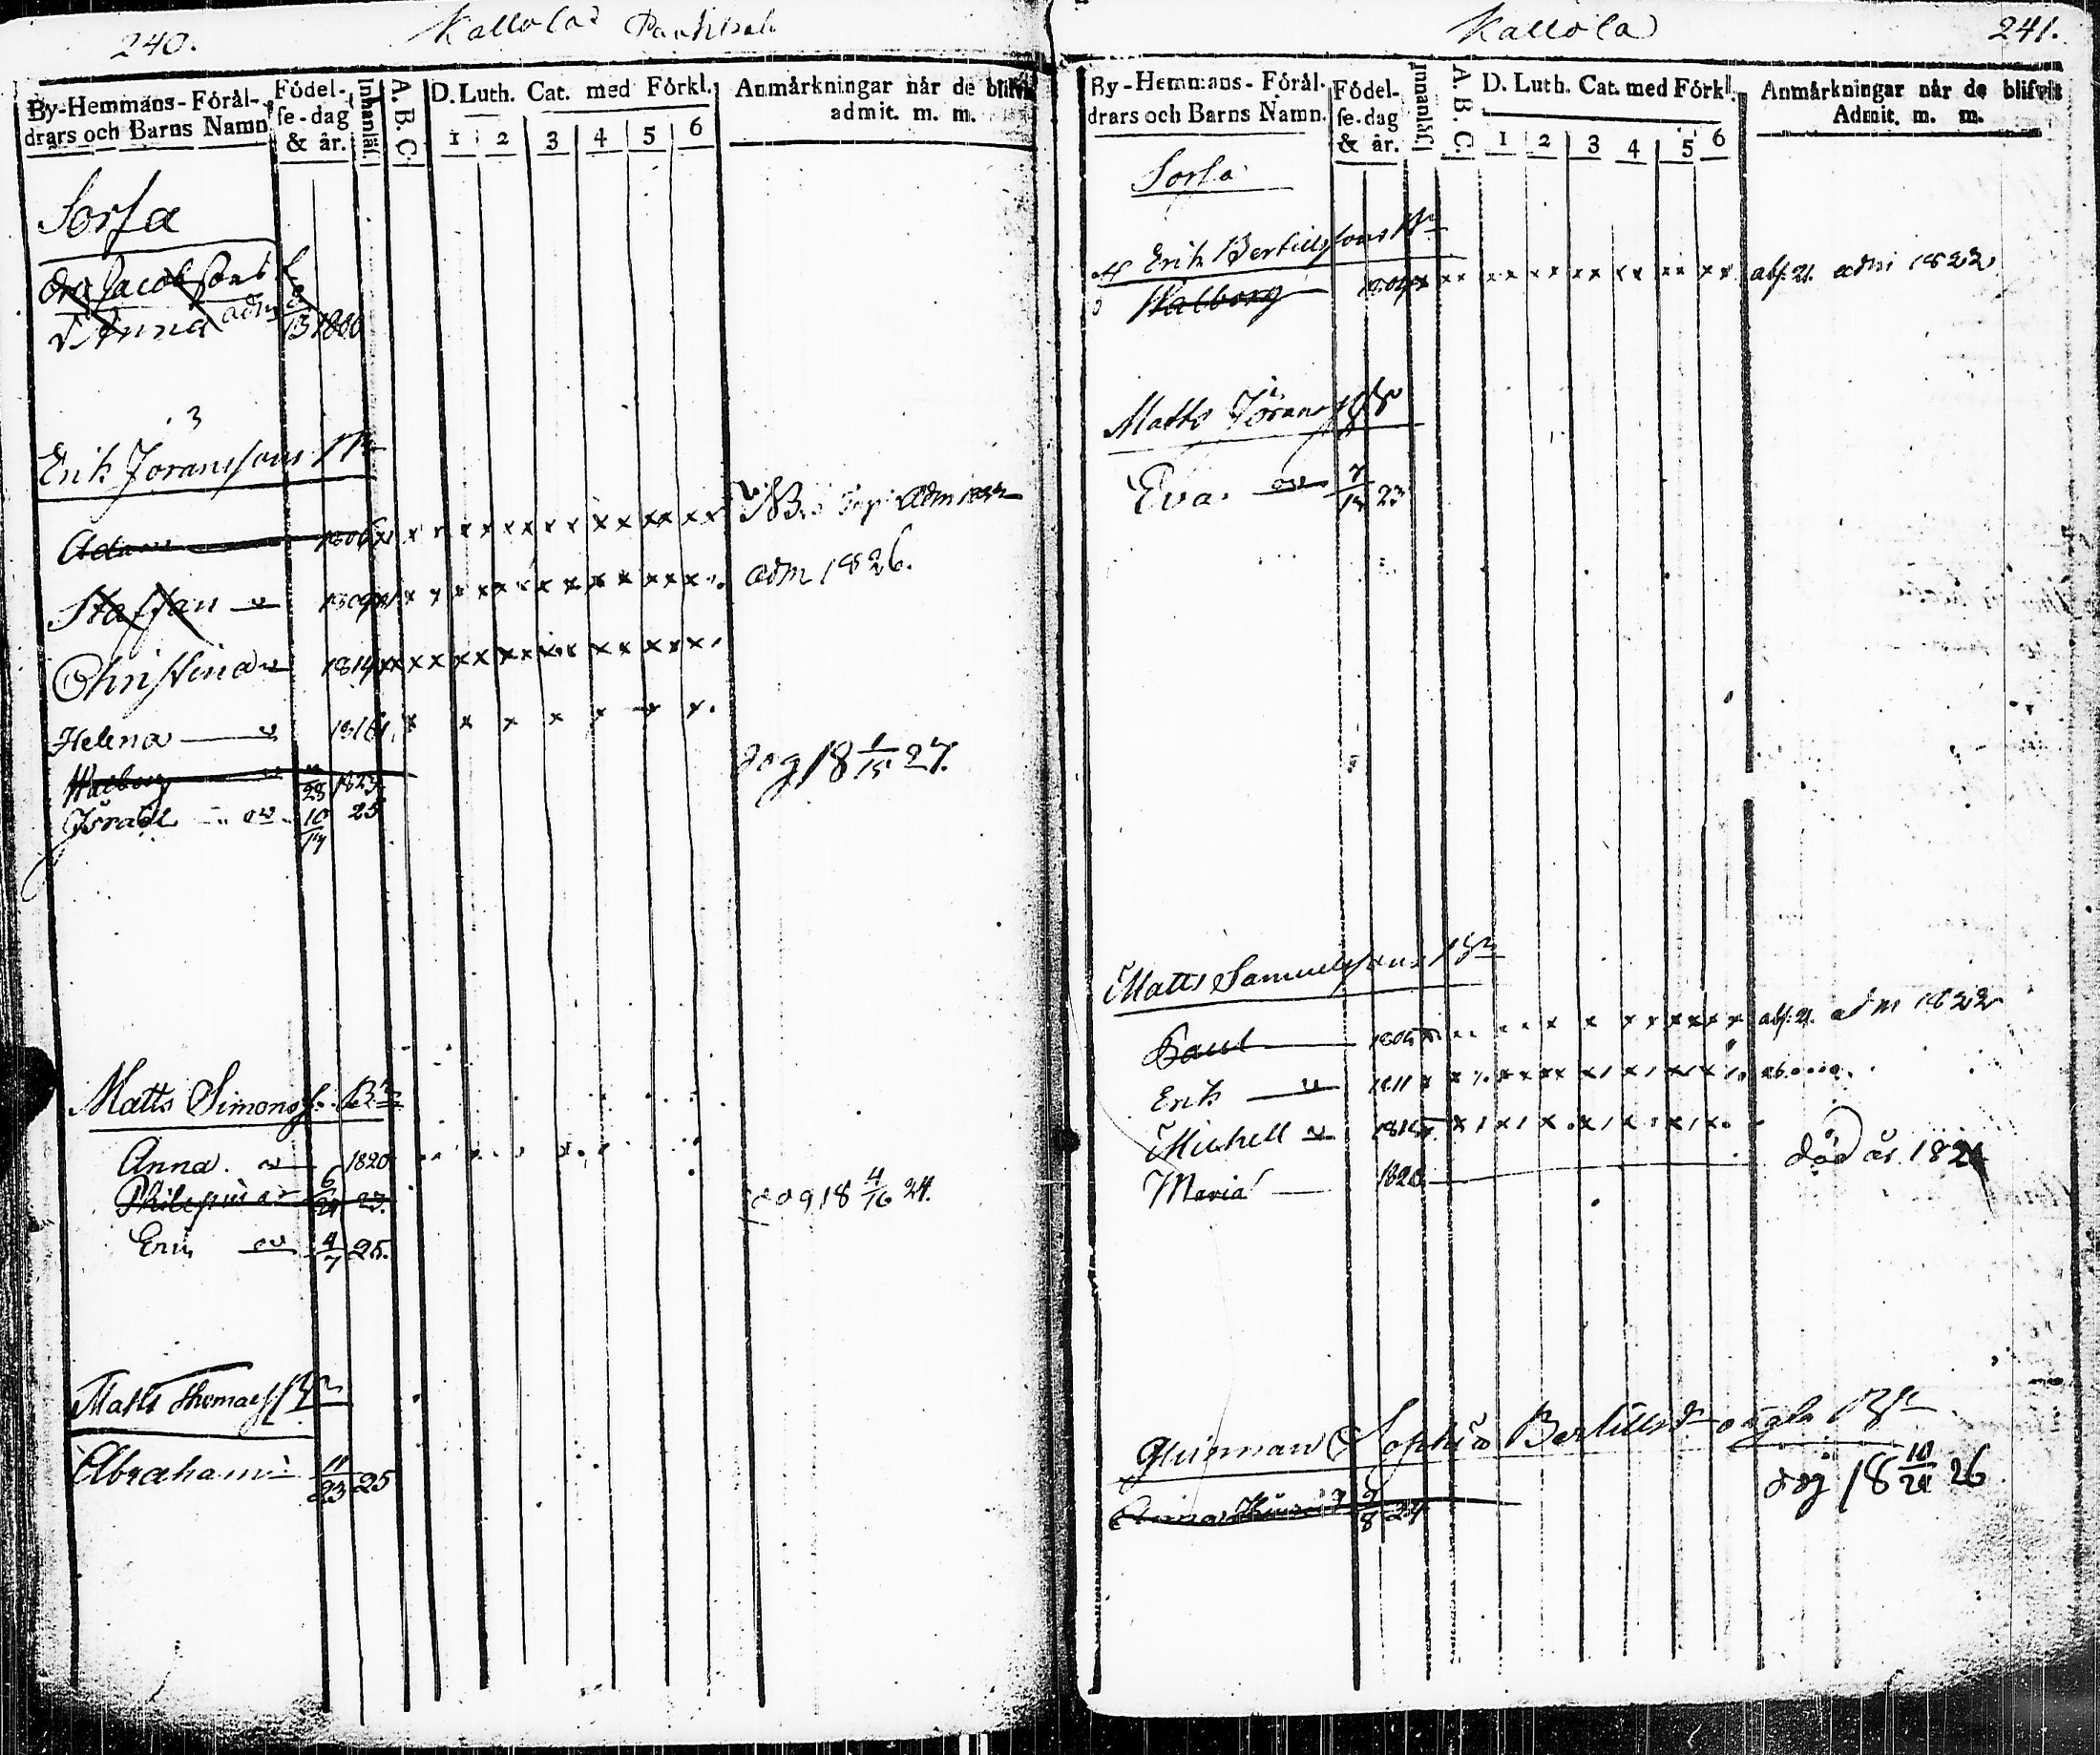 240.
Kallola
By-Hemmans-Förål-
drars och Barns Namn
Födel-
se-dag
& år.
Innanläs.
A. B. C.
D. Luth. Cat. med Förkl.
1 2 3 4 5 6
Anmärkningar når de blifvit
admit. m. m.
Sorsa
Jacobsons
Anna adm 13 1800
3
Erik Joranssons Bn
Adam 1806 x x x x x x x x x x x x x x NB. adm
Staffan 1809 x x x x x x x x x x x x x adm 1826.
Christina 1814 xx xx xx xx xx xx xx x
Helena 1816 x x x x x x x
Walborg 28 1823 dog 18 1/15 27.
Israel 10/14 25
Matts Simons. Bn
Anna. 1820
Philippus 6/21 23. dog 18 4/16 24.
Eric 4/7 25.
Matts Thomas Bn
Abraham 11/23 25
Kallola
241.
By-Hemmans-Förål-
drars och Barns Namn.
Födel-
se-dag
& år.
Innanläs.
A. B. C.
D. Luth. Cat. med Förkl.
1 2 3 4 5 6
Anmärkningar når de blifvit
Admit. m. m.
Sorsa
Erik Bertillssons Bn
Walborg x x x x x x x x x x x x x abs. 21. adm 1822
Matts Jörans Bn
Eva. 23
Matts Samuelssons Bn
Paul 1805 x x x x x x x x x abs. 21. adm 1822
Erik 1811 x x x x x x x x x x
Michell x x x x x x x
Maria 1820 död år 182
Qvinnan Sophia Bertillsd. oägta Bn
Anna 8 24 dog 18 10/21 26